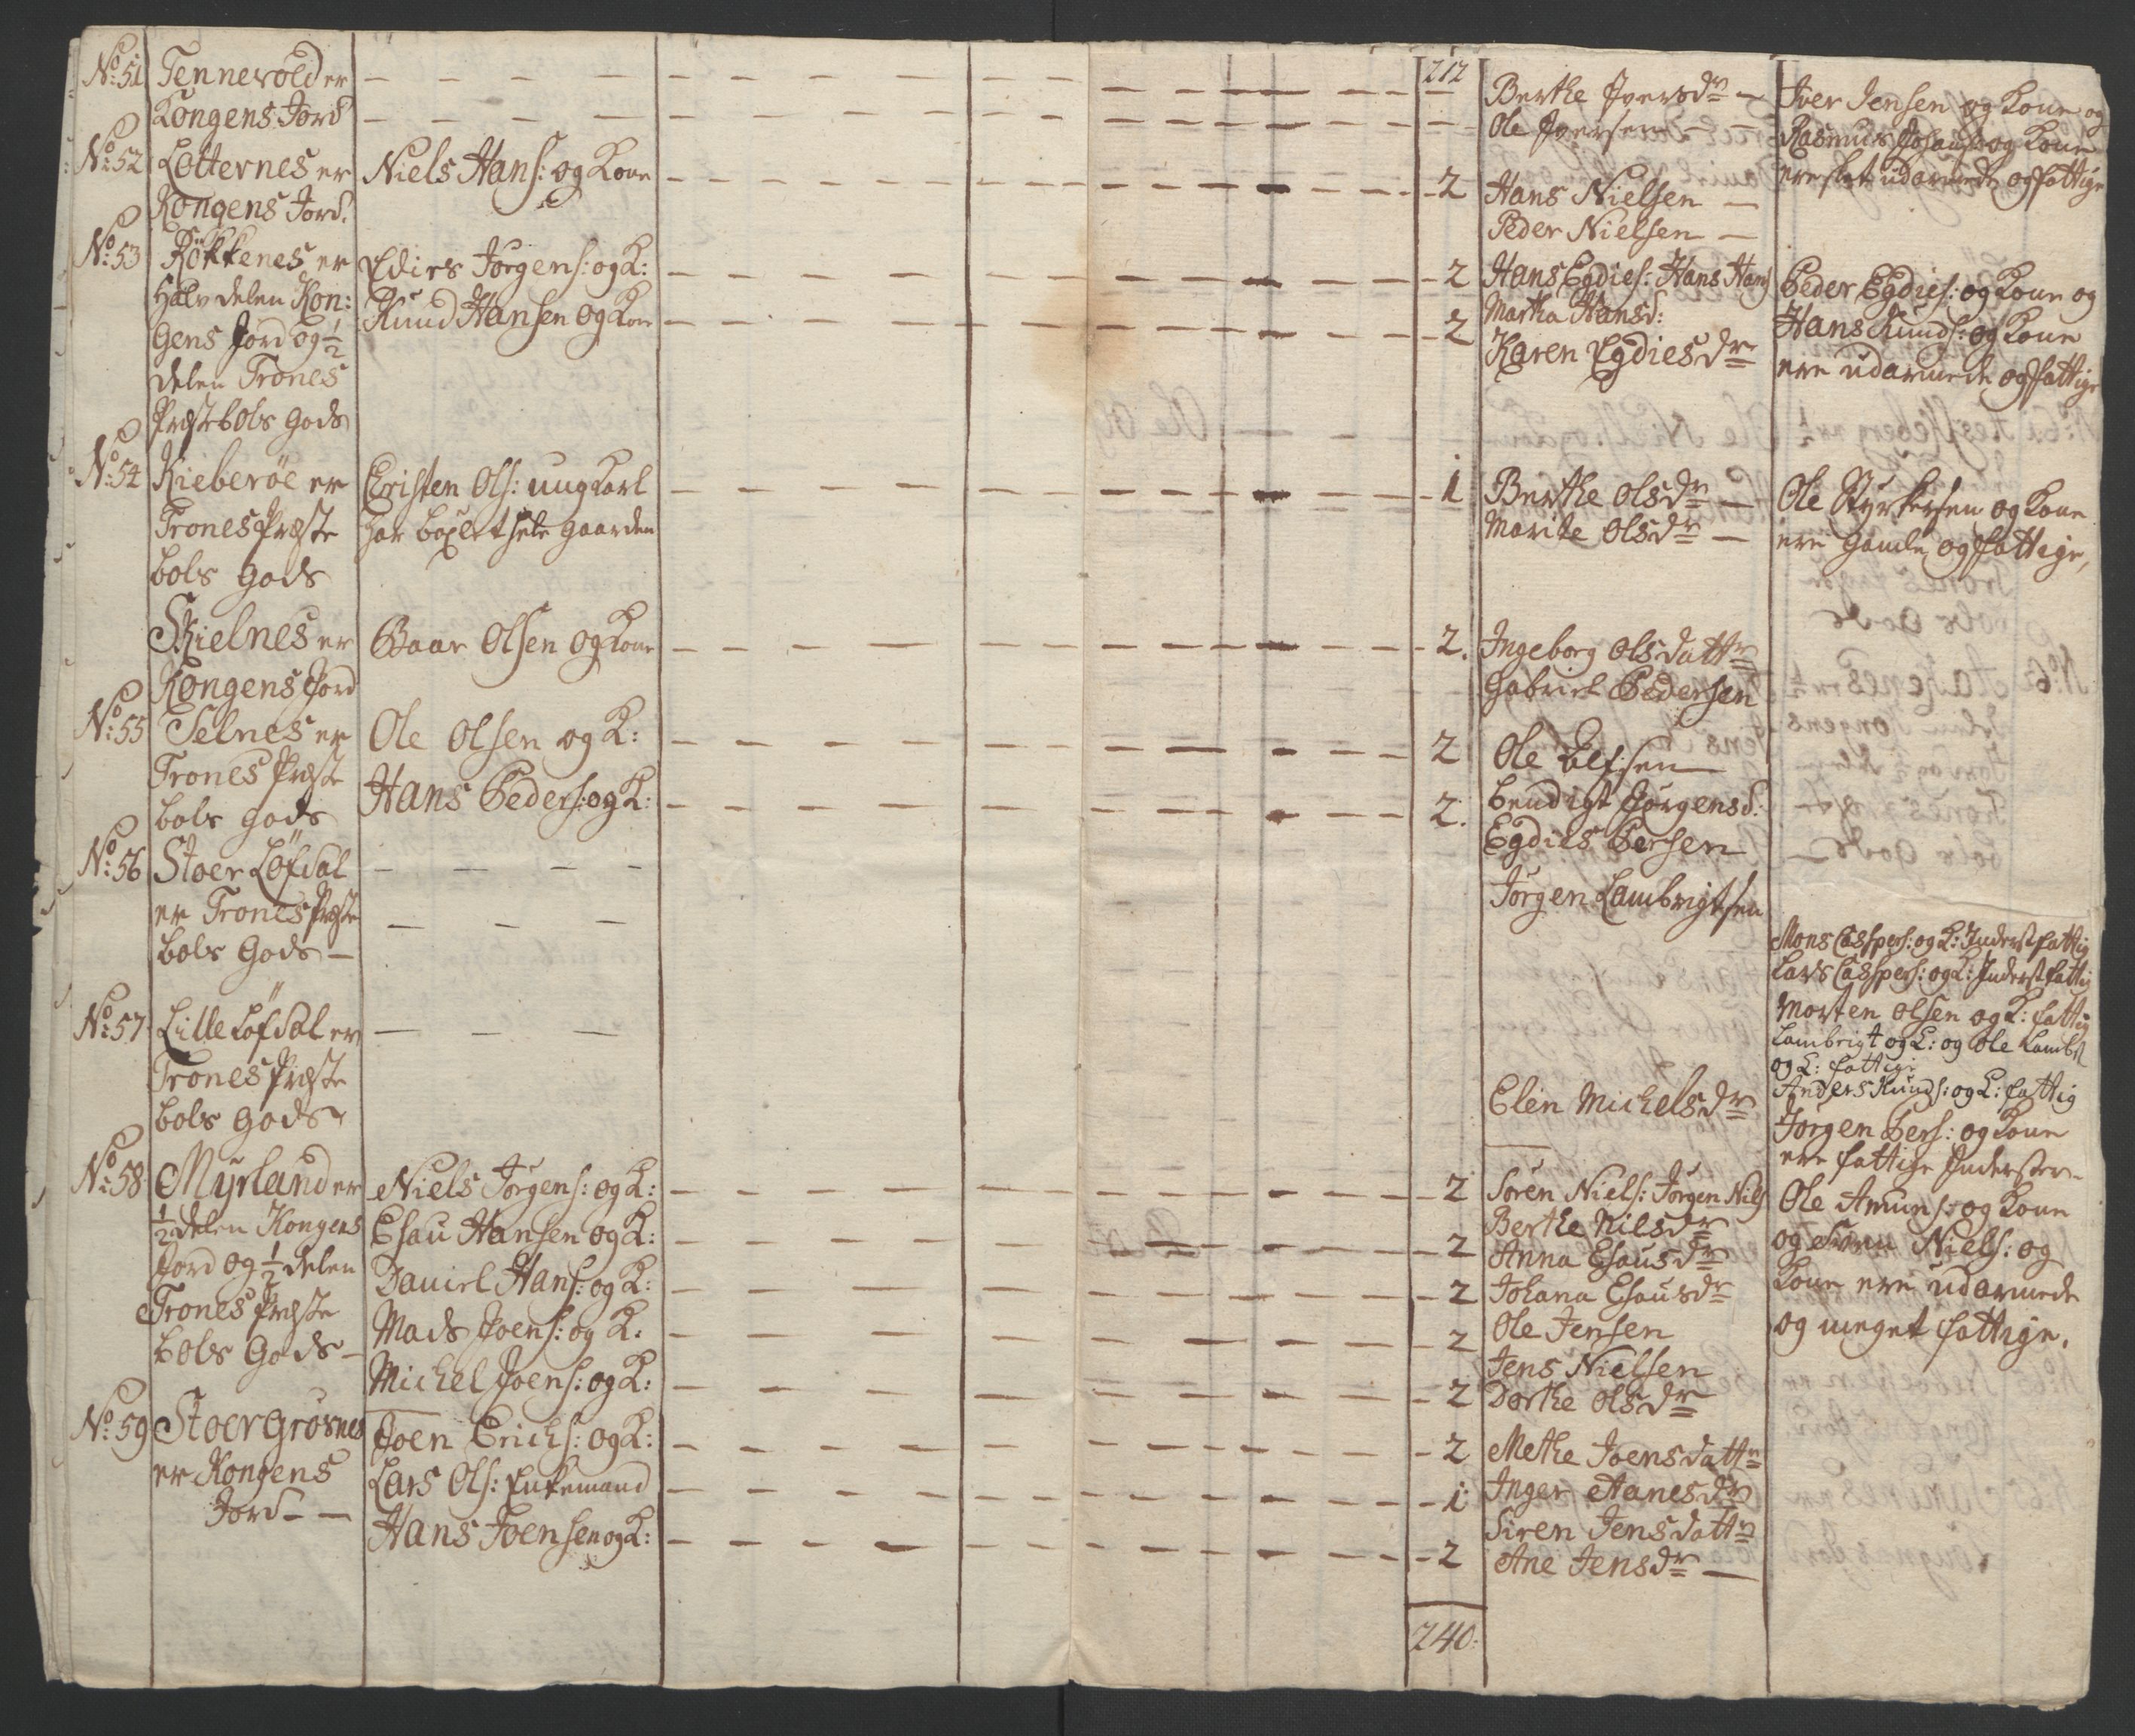 No: 51 Tennevold er - - - 212 Berthe Iversdr - Iver Jensen og Kone og
Kongens Jord - - - Ole Iversen - Rasmus Johans: og Kone
No: 52 Lotternes er Niels Hans: og Kone - - - 2 Hans Nielsen - ere slet udarmede og fattige
Kongens Jord. Peder Nielsen -
No: 53 Røkkenes er Edies Jørgens: og K: - - - 2 Hans Egdies: Hans Hans Peder Egdies: og Kone og
Halv delen Kon: Knud Hansen og Kone - - - 2 Martha Hansd: Hans Knuds: og Kone
gens Jord og 1/2 Karen Egdiesdr ere udarmede og fattige
delen Trones
Præstebols Gods
No: 54 Kieberöe er Cristen Ols: ung Karl - - - 1 Berthe Olsdr - Ole Styrkersen og Kone
Trones Præste har böxlet hele Gaarden Marite Olsdr - ere Gamle og fattige,
bols Gods
Skielnes er Baar Olsen og Kone - - - 2. Ingeborg Olsdattr
Kongens Jord Gabriel Pedersen
No: 55 Selnes er Ole Olsen og K: - - - 2 Ole Elefsen
Trones Præste Hans Peders: og K: - - - 2. Bendigt Jørgensd:
bols Gods Egdies Persen
No: 56 Stoer Löfdal - - - Jørgen Lambrigtsen
er Trones Præste - - - Mons Caspers: og K: Inderst fattig
bols Gods - Lars Caspers: og K: Inderst fattig
No: 57 Lille Löfdal er - - - Morten Olsen og K: fattig
Trones Præste Lambrigt og K: og Ole Lambr
bols Gods Elen Michelsdr og K: fattige
Anders Knuds: og K: fattig
Jørgen Pers: og Kone
ere fattige Inderster -
No: 58 Myrland er Niels Jørgens: og K: - - - 2 Søren Niels: Jørgen Nils Ole Amuns: og Kone
1/2 delen Kongens Esau Hansen og K: - - - 2 Berthe Nilsdr og Niels: og
Jord og 1/2 delen Daniel Hans: og K: - - - 2 Anna Esausdr Kone ere udarmede
Trones Præste Mads Joens: og K: - - - 2 Johana Esausdr og meget fattige.
bols Gods - Michel Joens: og K: - - - 2 Ole Jensen
Jens Nielsen
Dorthe Olsdr
No: 59 Stoer Grøsnes Joen Erichs: og K: - - - 2 Methe Joensdattr
er Kongens Lars Ols: Enkemand - - - 1 Inger Hanesdr
Jord - - Hans Joensen og K: - - - 2 Siren Jensdattr
Ane Jensdr -
240: